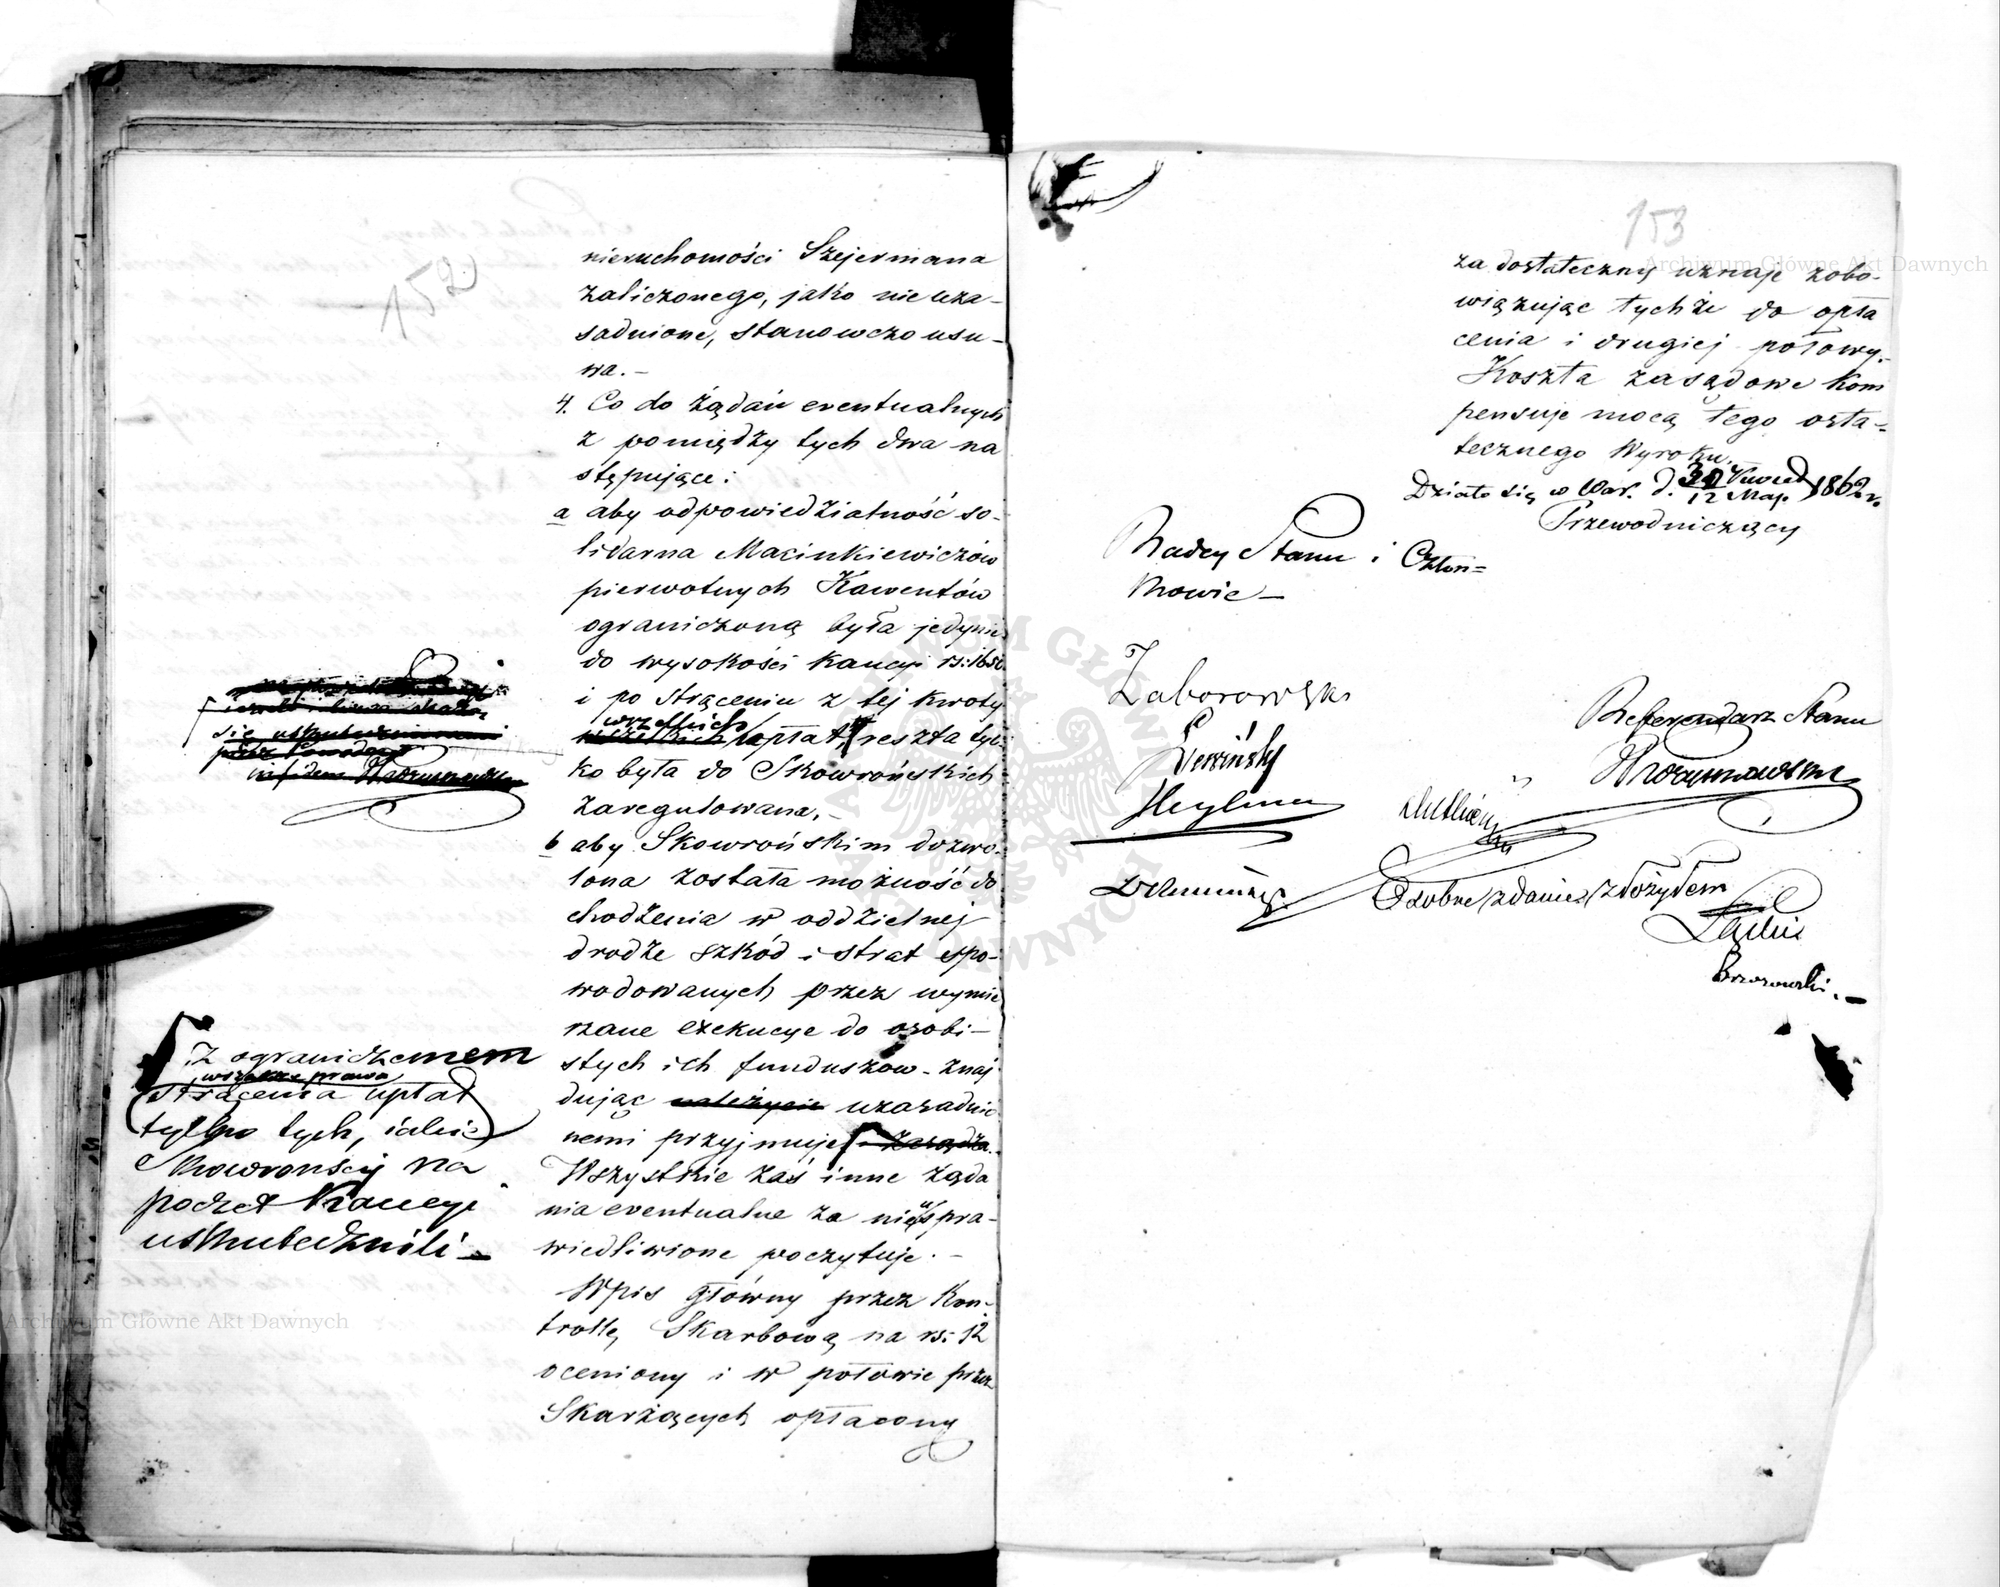 152
nieruchomości Szejermana
zaliczonego, jako nieuza-
sadnione, stanowczo usu-
wa. -
4. Co do żądań eventualnych
z pomiędzy tych dwa na
stępujące:
a aby odpowiedzialność so-
lidarna Macinkiewiczów
pierwotnych Kawentów
ograniczoną była jedynie
do wysokości kaucyi rs: 1650
i po strąceniu z tej kwoty
wszelkich
wszelkich opłat, reszta tyl-
ko była do Skowrońskich
zaregulowana. -
b aby Skowrońskim dozwo-
lona została możność do
chodzenia w oddzielnej
drodze szkód i strat spo-
wodowanych przez wymie
rzane exekucye do osobi-
stych ich funduszów - znaj
dując należycie uzasadnio
nemi przyjmuje i zasądza.
Wszystkie zaś inne żąda
nia eventualne za nieuspra-
wiedliwione poczytuje. -
Wpis główny przez Kon-
trollę Skarbową na rs: 12
oceniony i w połowie przez
Skarżących opłacony
się uskutecznionemi
przez
Z ograniczeniem
wszakże prawa
strącenia opłat
tylko tych, jakie
Skowrońscy na
poczet Kaucyi
uskutecznili -
153
za dostateczny uznaje zobo-
wiązując tychże do opła
cenia i drugiej połowy.
Koszta zasądowe kom
pensuje mocą tego osta-
tecznego Wyroku.
Działo się w War. d. 30 Kwiet/12 Maja 1862 r.
Przewodniczący
Radcy Stanu i Człon=
kowie -
Zaborowski
Heylman
Referendarz Stanu
Osobne zdanie złożyłem
Brzozowski. -
Archiwum Główne Akt Dawnych
Archiwum Główne Akt Dawnych
ARCHIWUM GŁÓWNE AKT DAWNYCH